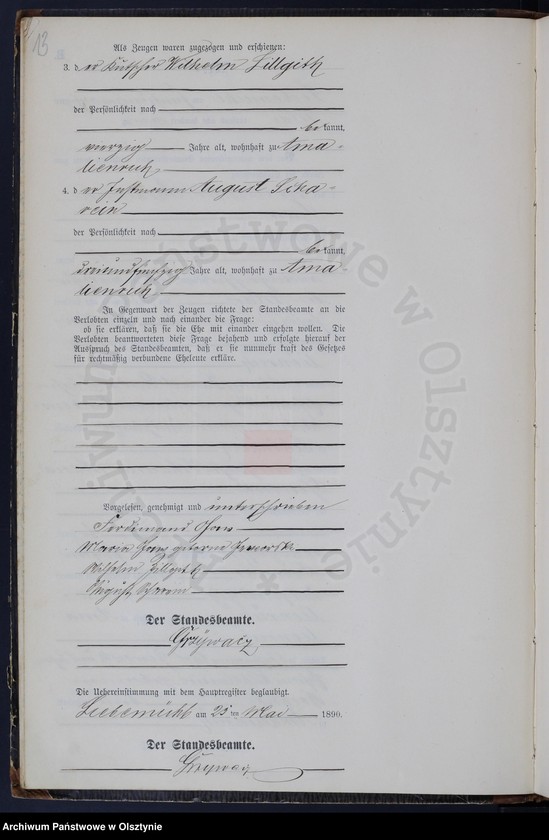 13
Als Zeugen waren zugezogen und erschienen:
3. der Kutscher Wilhelm Zillgith
der Persönlichkeit nach
bekannt,
vierzig Jahre alt, wohnhaft zu Ama-
lienruh
4. der Instmann August Scha-
rein
der Persönlichkeit nach
bekannt,
dreiundfünfzig Jahre alt, wohnhaft zu Ama-
lienruh
In Gegenwart der Zeugen richtete der Standesbeamte an die
Verlobten einzeln und nach einander die Frage:
ob sie erklären, daß sie die Ehe mit einander eingehen wollen. Die
Verlobten beantworteten diese Frage bejahend und erfolgte hierauf der
Ausspruch des Standesbeamten, daß er sie nunmehr kraft des Gesetzes
für rechtmäßig verbundene Eheleute erkläre.
Vorgelesen, genehmigt und unterschrieben
Ferdinand
Maria geborne
Wilhelm Zillgith
August Scharein
Der Standesbeamte.
Grzywacz
Die Uebereinstimmung mit dem Hauptregister beglaubigt.
Liebemühl am 25ten Mai 1890.
Der Standesbeamte.
Grzywacz
Archiwum Państwowe w Olsztynie
Archiwum Państwowe w Olsztynie